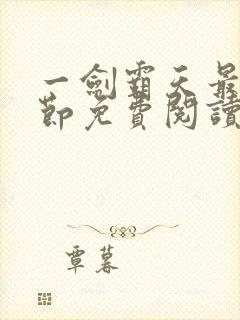 一劍霸天最
節免費閱讀
覃暮